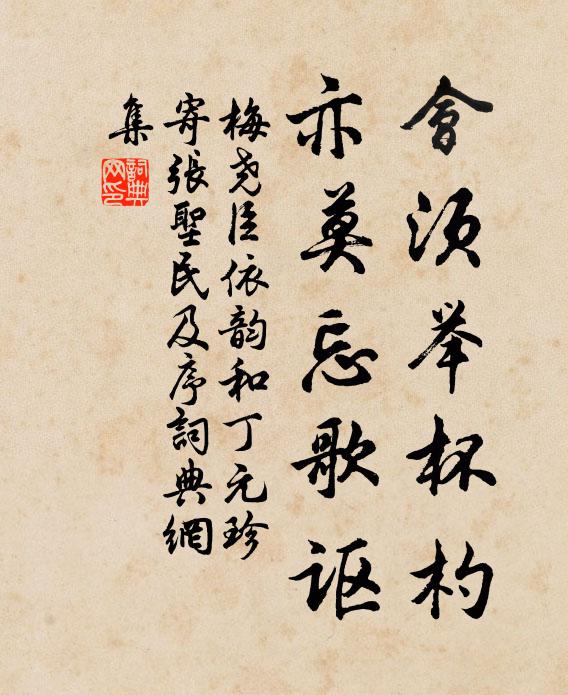 會須举杯杓
亦莫忘歌讴
梅尧臣依韵和丁元珍
寄張聖民及序詞典網
集
詞典網印